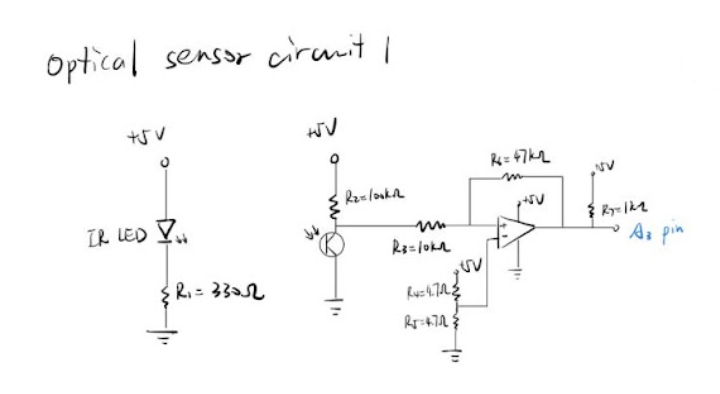 Optical sensor circuit 1
+5V
IR LED
R1 = 330Ω
+5V
R2=100kΩ
R3=10kΩ
R6=47kΩ
+5V
+
-
+5V
R4=4.7Ω
R5=4.7Ω
+5V
R7=1kΩ
A3 pin